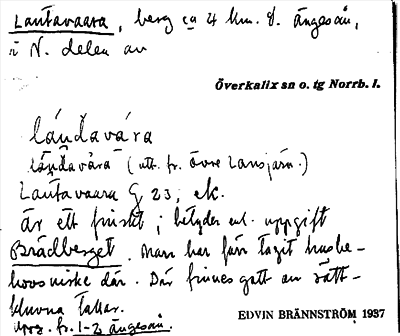 Lantavaara, berg ca 4 km. ö. ängesån,
i N. delen av
Överkalix sn o. tg Norrb. l.
lánđavára
lánđavàra (utt. fr. Övre Lansjärn.)
Lantavaara G 23, ek.
är ett finskt ; betyder enl. uppgift
Brädberget. Man har förr tagit husbe-
hovsvirke där. Där finnes gott om rätt-
kluvna tallar.
Uppg. fr. 1-2 ängesån.
EDVIN BRÄNNSTRÖM 1937